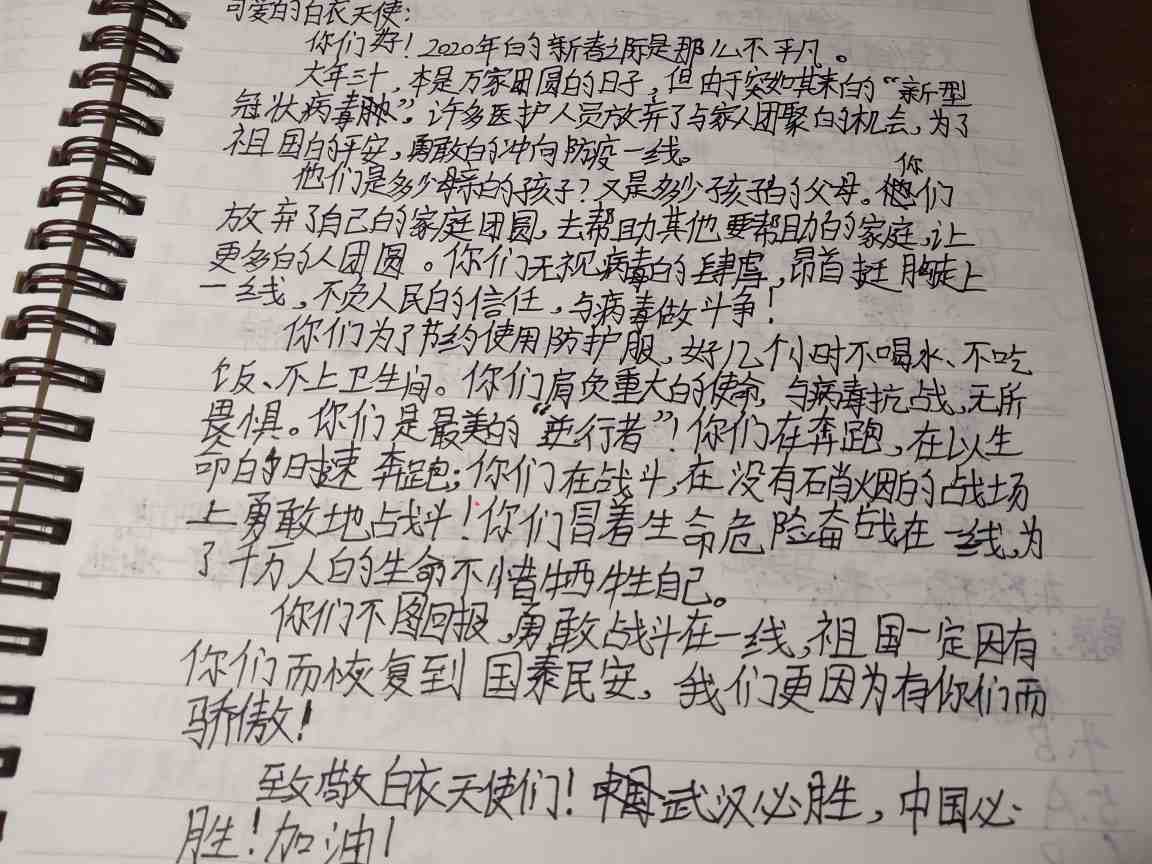 可爱的白衣天使:
你们好!2020年的新春之际是那么不平凡。
大年三十,本是万家团圆的日子,但由于突如其来的“新型
冠状病毒肺”,许多医护人员放弃了与家人团聚的机会,为了
祖国的平安,勇敢的冲向防疫一线。
他们是多少母亲的孩子?又是多少孩子的父母。你们
放弃了自己的家庭团圆,去帮助其他要帮助的家庭,让
更多的人团圆。你们无视病毒的肆虐,昂首挺胸走上
一线,不负人民的信任,与病毒做斗争!
你们为了节约使用防护服,好几个小时不喝水、不吃
饭、不上卫生间。你们肩负重大的使命,与病毒抗战,无所
畏惧。你们是最美的“逆行者”!你们在奔跑,在以生
命的时速奔跑;你们在战斗,在没有硝烟的战场
上勇敢地战斗!你们冒着生命危险奋战在一线,为
了千万人的生命不惜牺牲自己。
你们不图回报,勇敢战斗在一线,祖国一定因有
你们而恢复到国泰民安,我们更因为有你们而
骄傲!
致敬白衣天使们!中国武汉必胜,中国必
胜!加油!